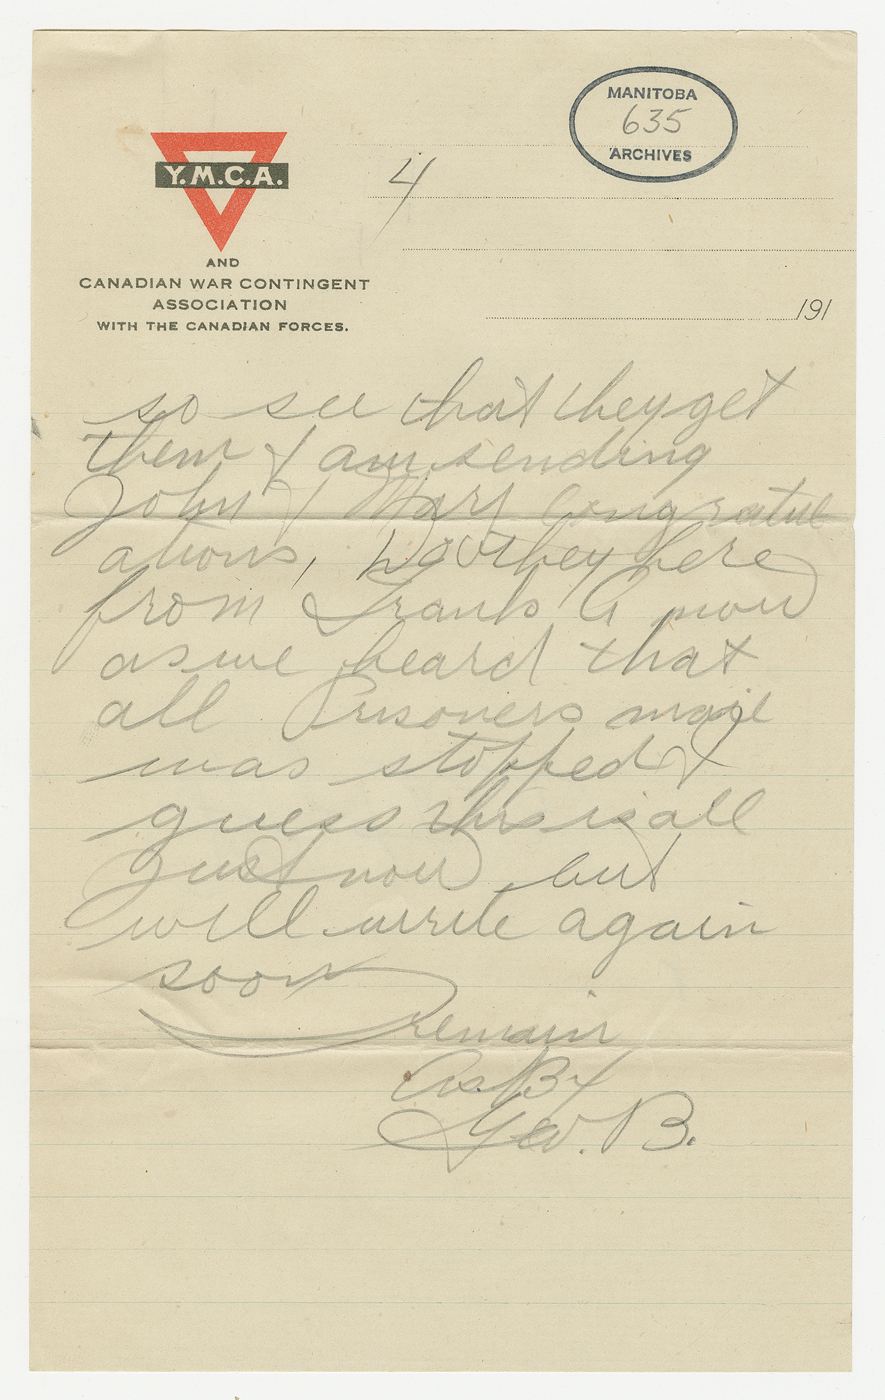 MANITOBA
635
ARCHIVES
Y.M.C.A.
4
AND
CANADIAN WAR CONTINGENT
ASSOCIATION
WITH THE CANADIAN FORCES.
191
so see that they get
them & I am sending
John & Mary Congratul
ations, do they here
from Frank A now
as we heard that
all Prisoners mail
was stopped &
guess this is all
Just now, but
will write again
soon
I remain
As B4
Geo. B.